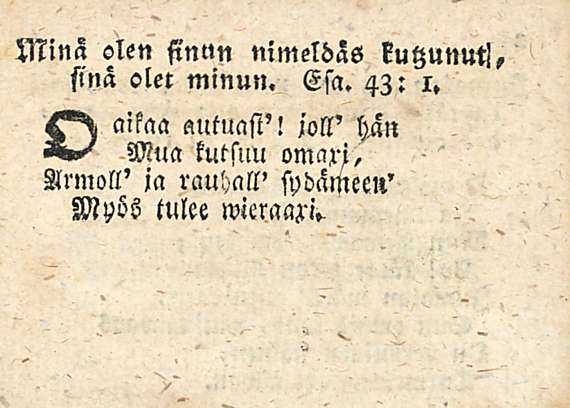 Minä olen sinun nimeldäs kutzunut,
sinä olet minun. Esa. 43: 1.
O aikaa autuast'! joll' hän
Mua kutsuu omaxi,
Armoll' ja rauhall' sydämeen'
Myös tulee wieraaxi.